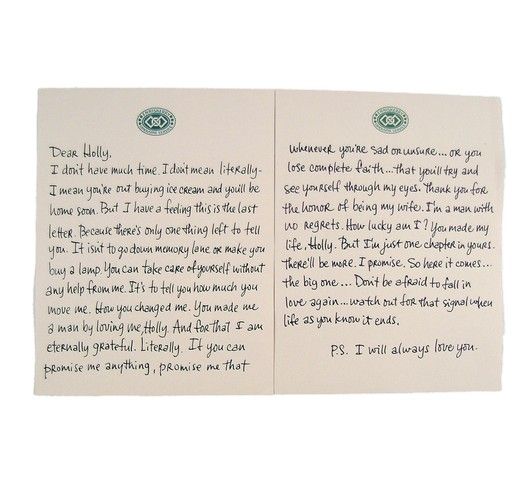 Dear Holly,
I don't have much time. I don't mean literally-
I mean you're out buying ice cream and you'll be
home soon. But I have a feeling this is the last
letter. Because there's only one thing left to tell
you. It isn't to go down memory lane or make you
buy a lamp. You can take care of yourself without
any help from me. It's to tell you how much you
move me. How you changed me. You made me
a man by loving me, Holly. And for that I am
eternally grateful. Literally. If you can
promise me anything, promise me that
whenever you're sad or unsure... or you
lose complete faith... that you'll try and
see yourself through my eyes. Thank you for
the honor of being my wife. I'm a man with
no regrets. How lucky am I? You made my
life, Holly. But I'm just one chapter in yours.
There'll be more. I promise. So here it comes...
the big one... Don't be afraid to fall in
love again... watch out for that signal when
life as you know it ends.
P.S. I will always love you.